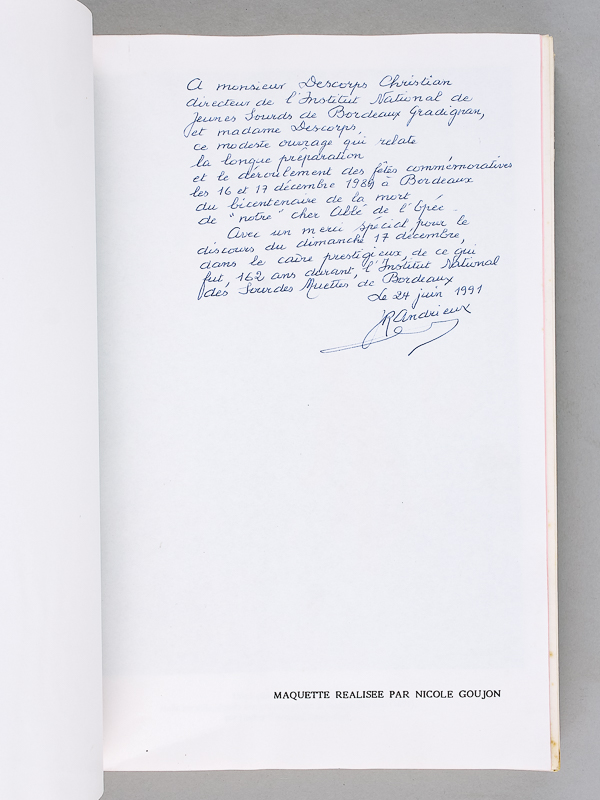 A monsieur Descorps Christian
directeur de l'Institut National de
Jeunes Sourds de Bordeaux Gradignan,
et madame Descorps,
ce modeste ouvrage qui relate
la longue préparation
et le déroulement des fêtes commémoratives
les 16 et 17 décembre 1989 à Bordeaux
du bicentenaire de la mort
de "notre" cher Abbé de l'Epée.
Avec un merci spécial pour le
discours du dimanche 17 décembre,
dans le cadre prestigieux, de ce qui
fut, 162 ans durant, l'Institut National
des Sourdes Muettes de Bordeaux
Le 24 juin 1991
RAndrieux
MAQUETTE REALISEE PAR NICOLE GOUJON